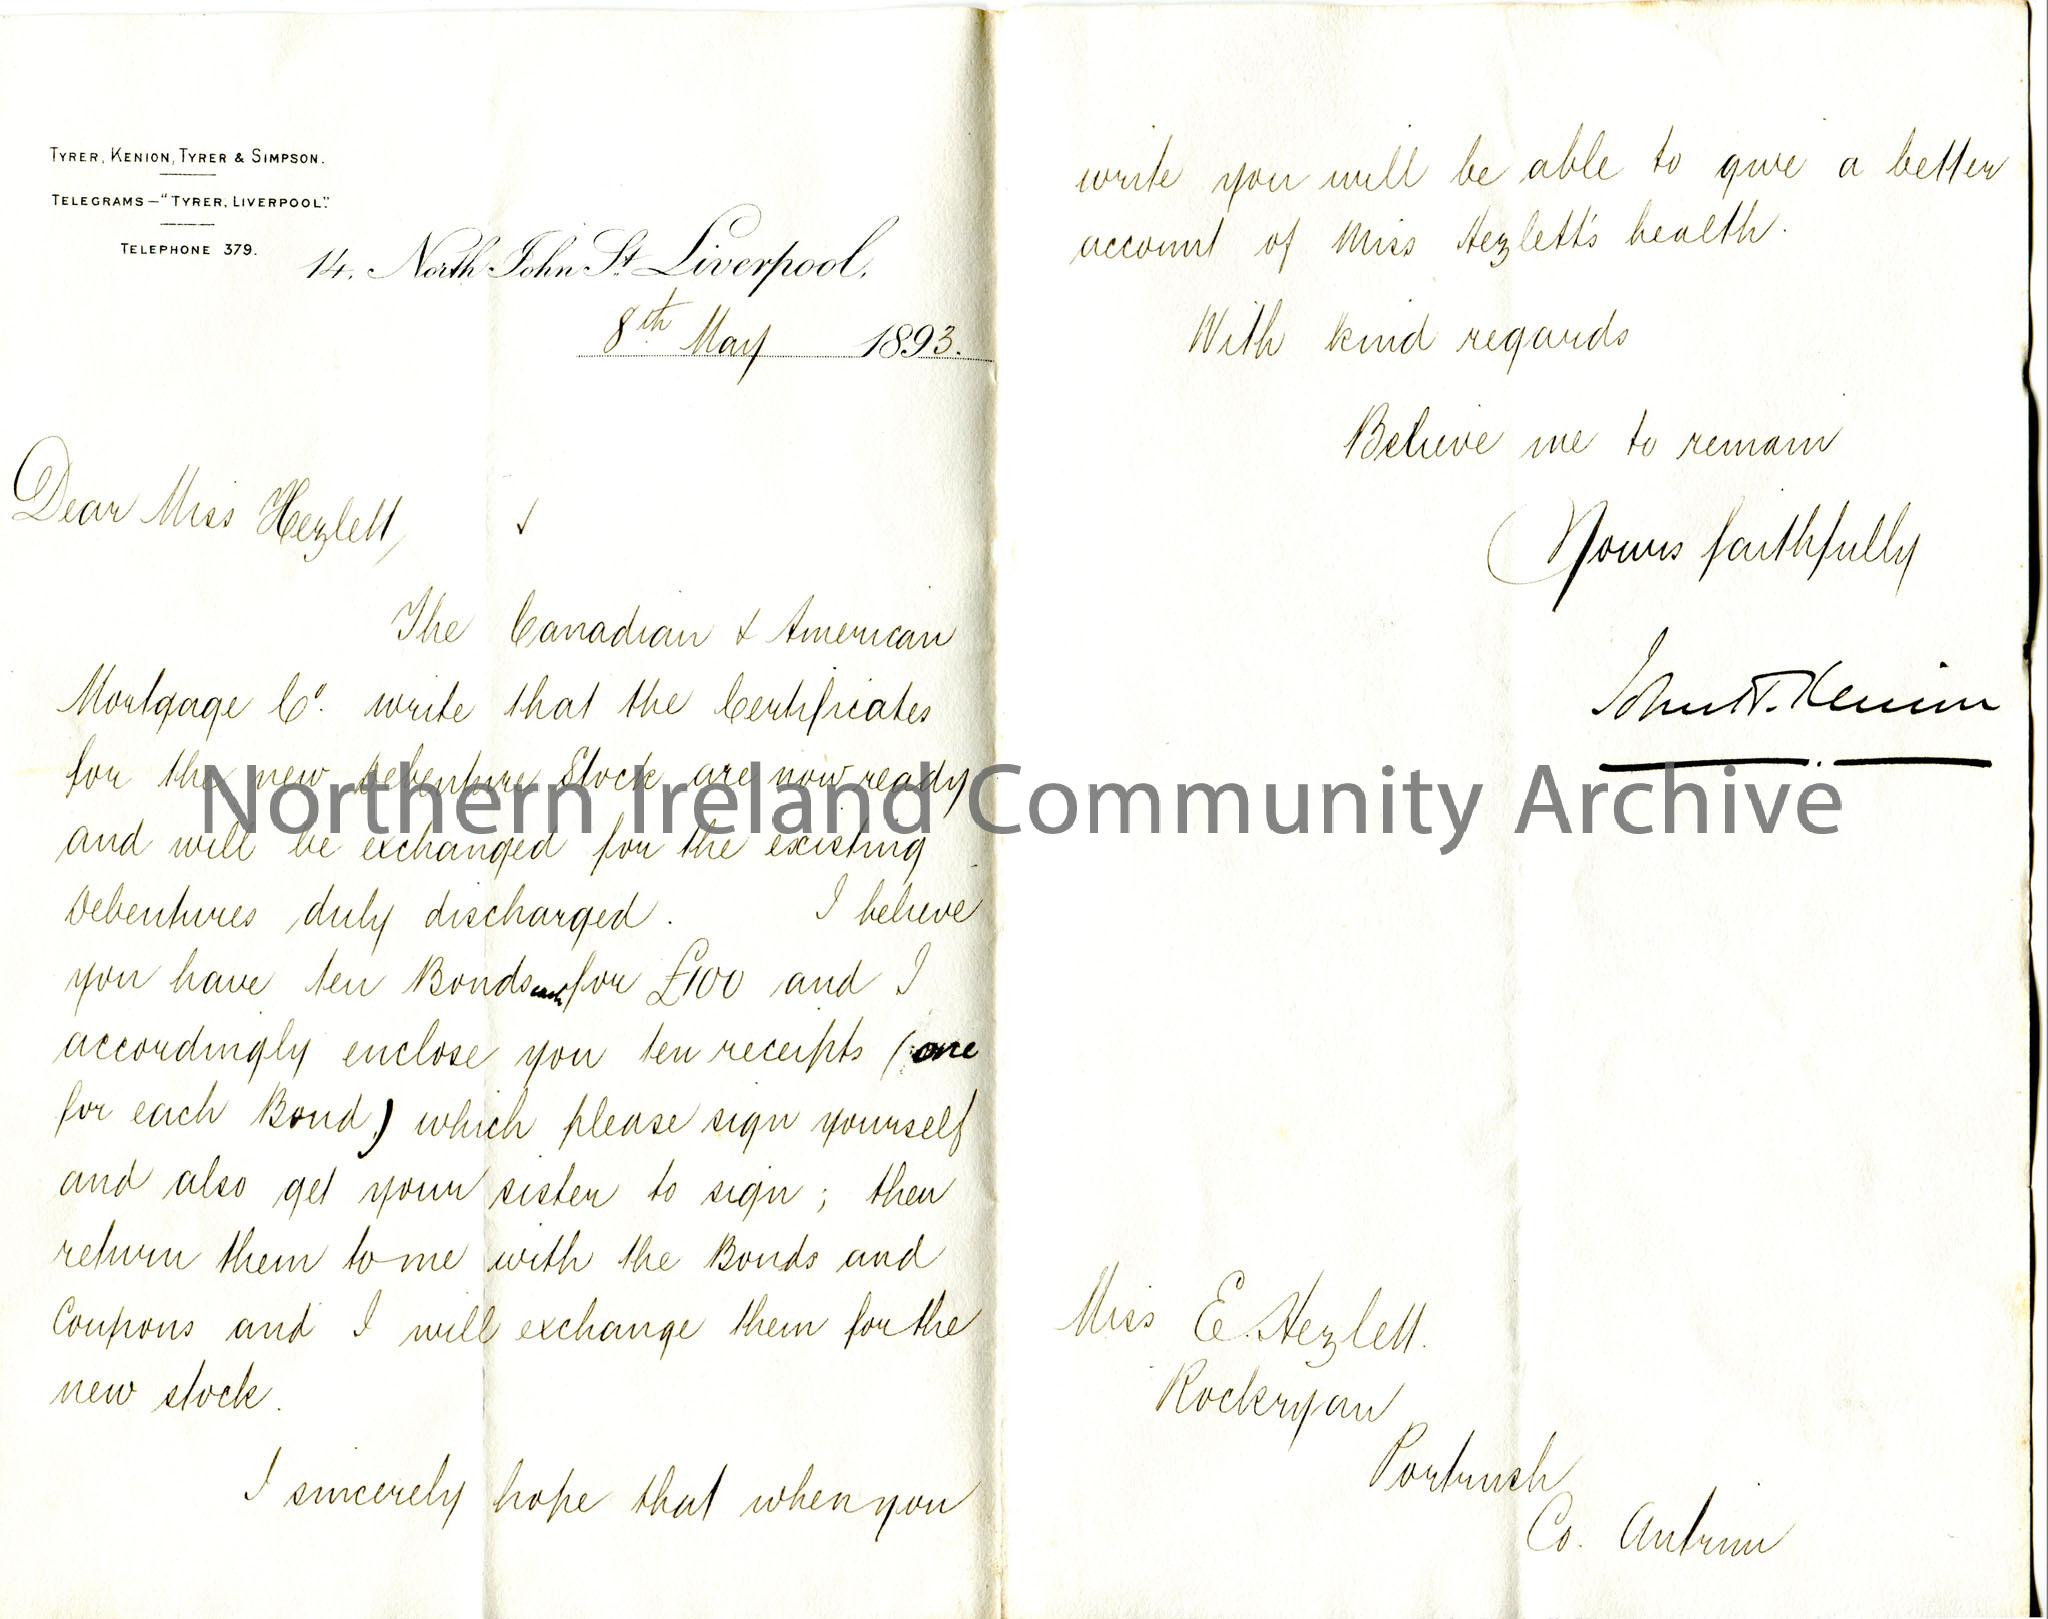 TYRER, KENION, TYRER & SIMPSON.
TELEGRAMS—"TYRER, LIVERPOOL".
TELEPHONE 379.
14, North John St. Liverpool,
8th May 1893.
Dear Miss Hezlett,
The Canadian & American
Mortgage Co. write that the Certificates
for the new Debenture Stock are now ready
and will be exchanged for the existing
Debentures duly discharged. I believe
you have ten Bonds each for £100 and I
accordingly enclose you ten receipts (one
for each Bond) which please sign yourself
and also get your sister to sign; then
return them to me with the Bonds and
Coupons and I will exchange them for the
new stock.
I sincerely hope that when you
write you will be able to give a better
account of Miss Hezlett's health.
With kind regards
Believe me to remain
Yours faithfully
John T. Kenion
Miss E. Hezlett.
Rockryan
Portrush
Co. Antrim
Northern Ireland Community Archive